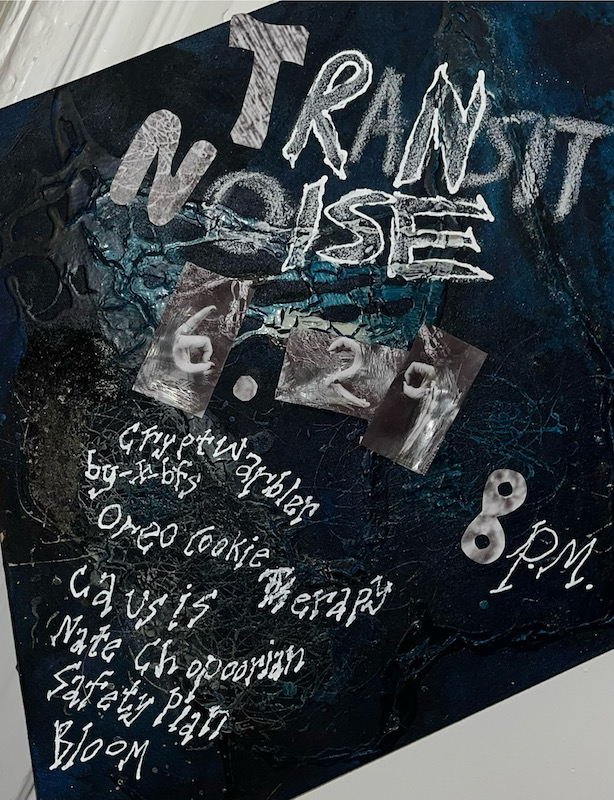 TRANSIT
NOISE
6.29
Cryptwarbler
by-x-bfs
8 P.M.
Oreo Cookie
Therapy
Causis
Nate Chopoorian
Safety Plan
Bloom